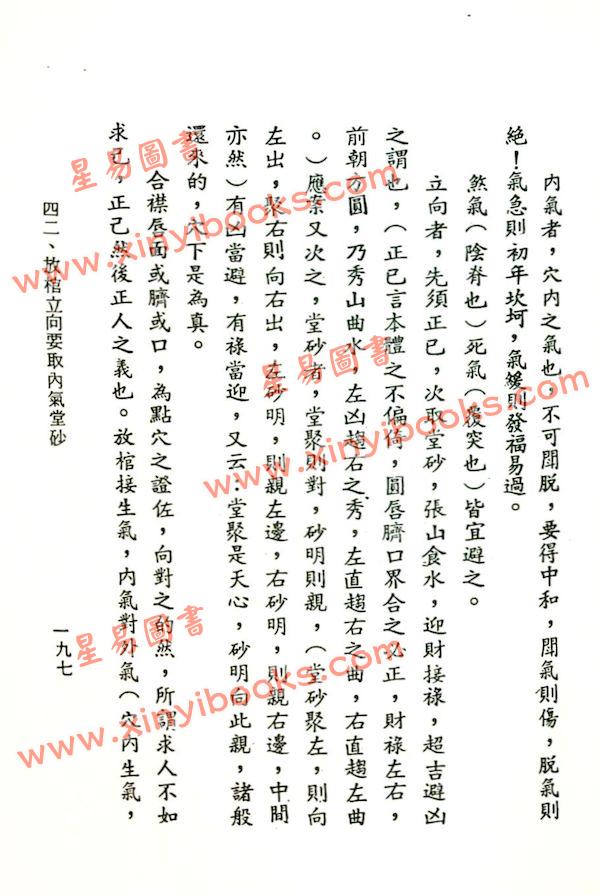 內氣者，穴內之氣也，不可閗脱，要得中和，閗氣則傷，脱氣則
絶！氣急則初年坎坷，氣緩則發福易過。
煞氣（陰脊也）死氣（覆突也）皆宜避之。
立向者，先須正已，次取堂砂，張山食水，迎財接祿，超吉避凶
之謂也，（正已言本體之不偏倚，圓唇臍口界合之必正，財祿左右，
前朝方圓，乃秀山曲水，左凶趨右之秀，左直趨右之曲，右直趨左曲
。）應案又次之，堂砂者，堂聚則對，砂明則親，（堂砂聚左，則向
左出，聚右則向右出，左砂明，則親左邊，右砂明，則親右邊，中間
亦然）有凶當避，有祿當迎，又云：堂聚是天心，砂明向此親，諸般
還來的，穴下是為真。
合襟唇面或臍或口，為點穴之證佐，向對之的然，所謂求人不如
求已，正己然後正人之義也。放棺接生氣，內氣對外氣（穴內生氣，
四二、放棺立向要取內氣堂砂
一九七
星易圖書
www.xinyibooks.com
星易圖書
www.xinyibooks.com
星易圖書
www.xinyibooks.com